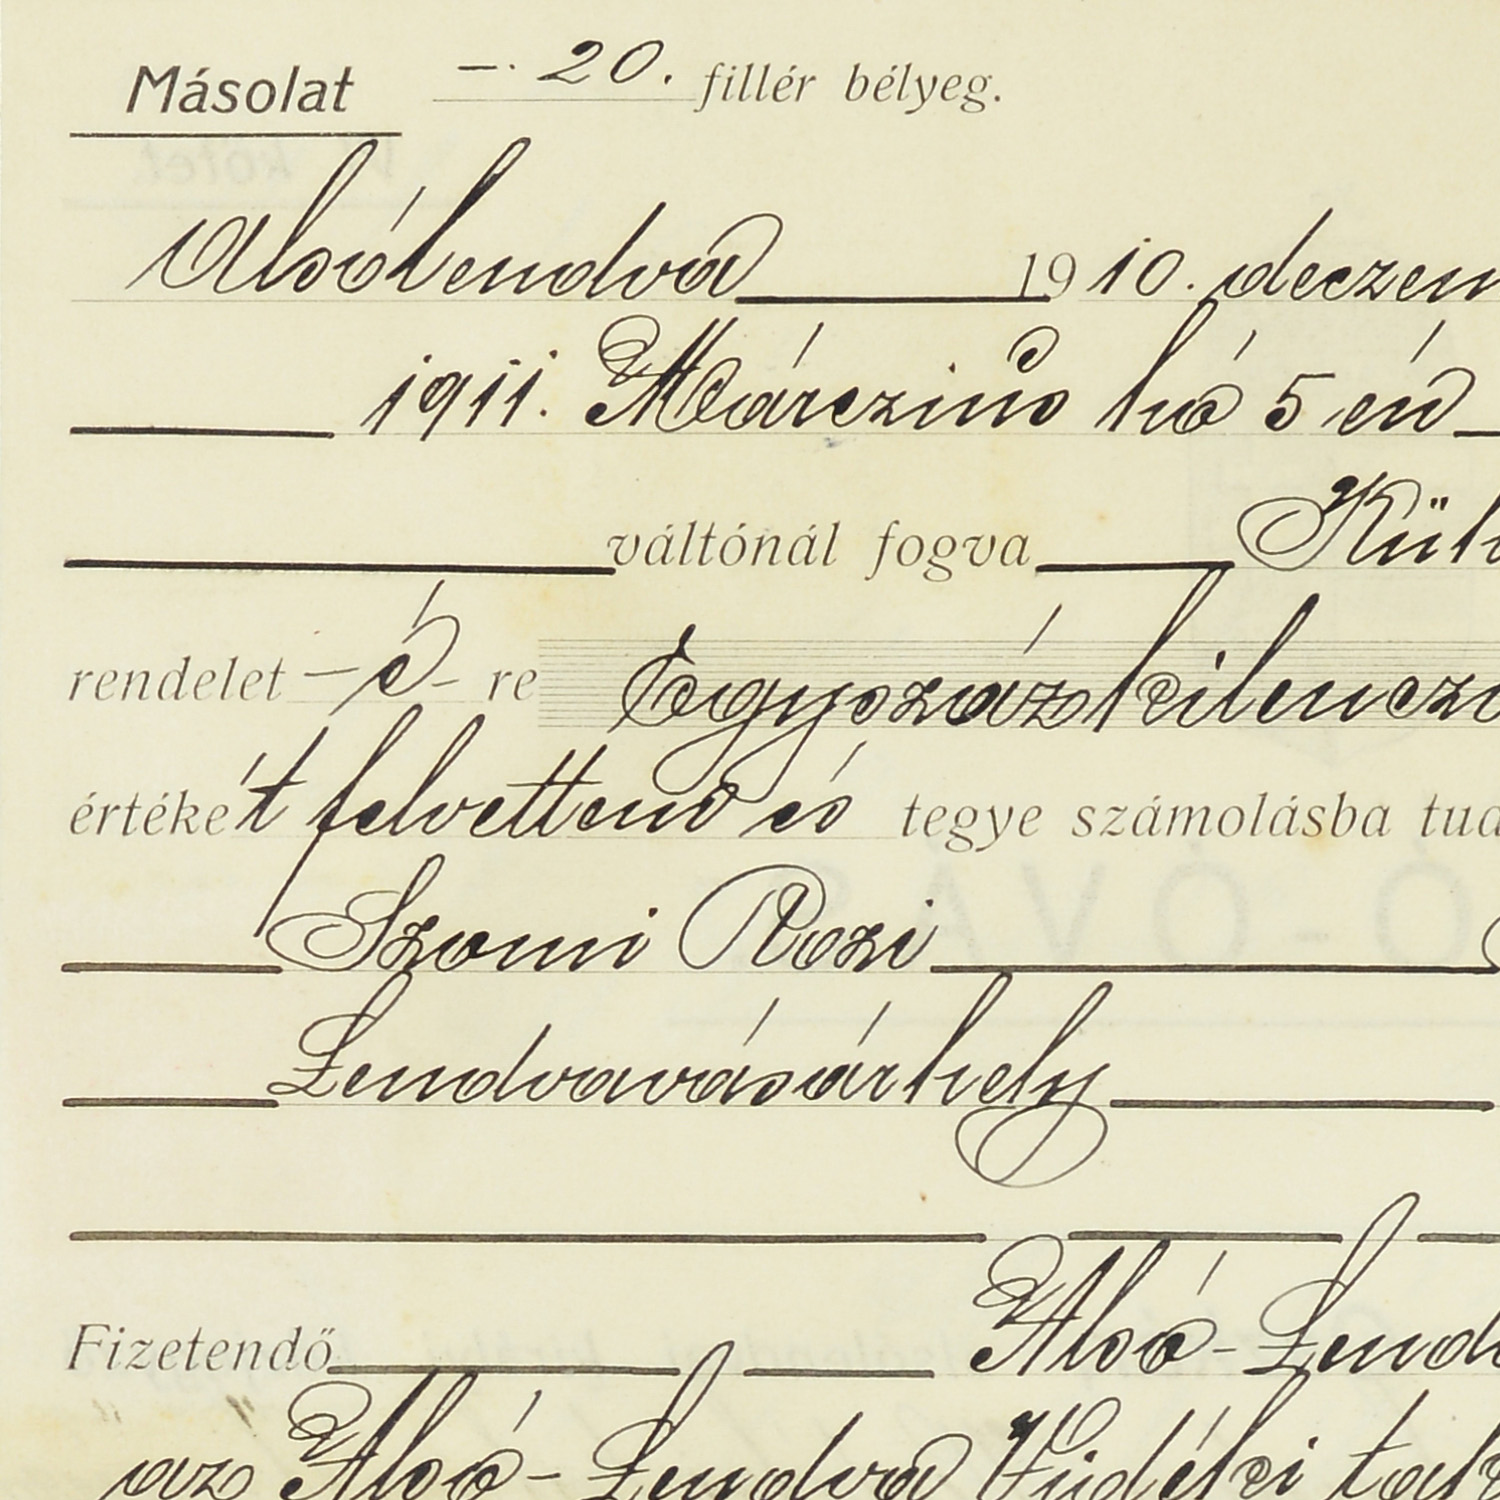 Másolat —. 20. fillér bélyeg.
Alsólendva 1910. deczem
1911. Márczius hó 5 én
váltónál fogva Kül
rendelet — é — re Egyszázkilencz
értékét felvettem és tegye számolásba tud
Szomi Rozi
Lendvavásárhely
Fizetendő Alsó-Lend
az Alsó-Lendva Vidéki tak